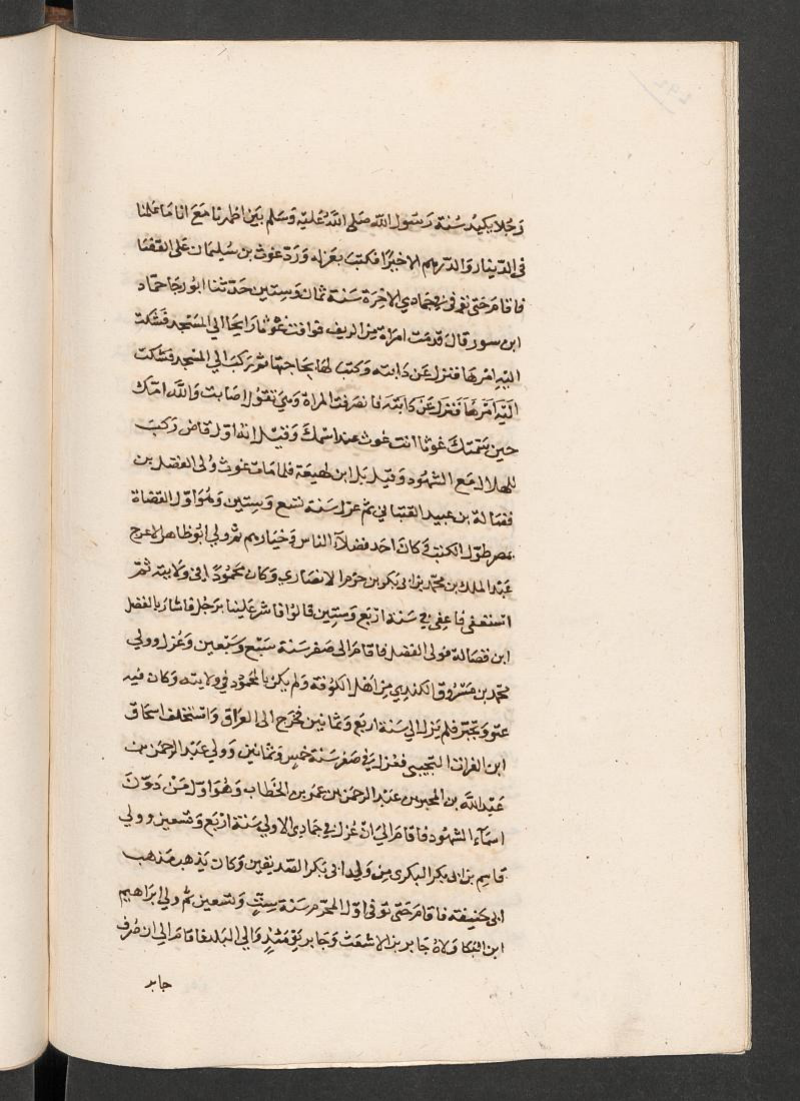 رجلا يكيد سنة رسول الله صلى الله عليه وسلم بين اظهرنا مع انا ما علمنا
في الدينار والدرهم الا خيرا فكتب بعزله ورد غوث بن سليمان على القضا
فاقام حتى توفي في جمادي الاخرة سنة ثمان وستين حدثنا ابو رجا حماد
ابن سور قال قدمت امراة من الريف فوافت غوثا رايحا الي المسجد فشكت
اليه امرها فنزل عن دابته وكتب لها بحاجتها ثم ركب الي المسجد فشكت
اليه امرها فنزل عن دابته فانصرفت المراة وهي تقول اصابت والله امك
حين سمتك غوثا انت غوث عند اسمك وقيل انه اول قاض ركب
للهلال مع الشهود وقيل بل ابن لهيعة فلما مات غوث ولى الفضل بن
فضالة بن عبيد القتباني ثم عزل سنة تسع وستين وهو اول القضاة
بمصر طول الكتب وكان احد فضلاء الناس وخيارهم ثم ولي ابو طاهر الاعرج
عبد الملك بن محمد بن ابى بكر بن حزم الانصاري وكان محمودا في ولايته ثم
استعفى فاعفي في سنة اربع وستين قالوا فاشر علينا برجل فاشار بالفضل
ابن فضالة فولى الفضل فاقام الى صفر سنة سبع وسبعين وعزل وولي
محمد بن مسروق الكندي من اهل الكوفة ولم يكن بالمحمود في ولايته وكان فيه
عتو وتجبر فلم يزل الي سنة اربع وثمانين فخرج الى العراق واستخلف اسحاق
ابن الفرات التجيبي فعزل في صفر سنة خمس وثمانين وولي عبد الرحمن بن
عبد الله بن المجبر بن عبد الرحمن بن عمر بن الخطاب وهو اول من دون
اسماء الشهود فاقام الي ان عزل في جمادى الاولي سنة اربع وتسعين وولي
قاسم بن ابى بكر البكري من ولد ابى بكر الصديقين وكان يذهب مذهب
ابى حنيفة فاقام حتى توفى اول المحرم سنة ست وتسعين ثم ولي ابراهيم
ابن البكا ولاه جابر بن الاشعث وجابر يومئذ والي البلد فاقام الى ان صرف
جابر